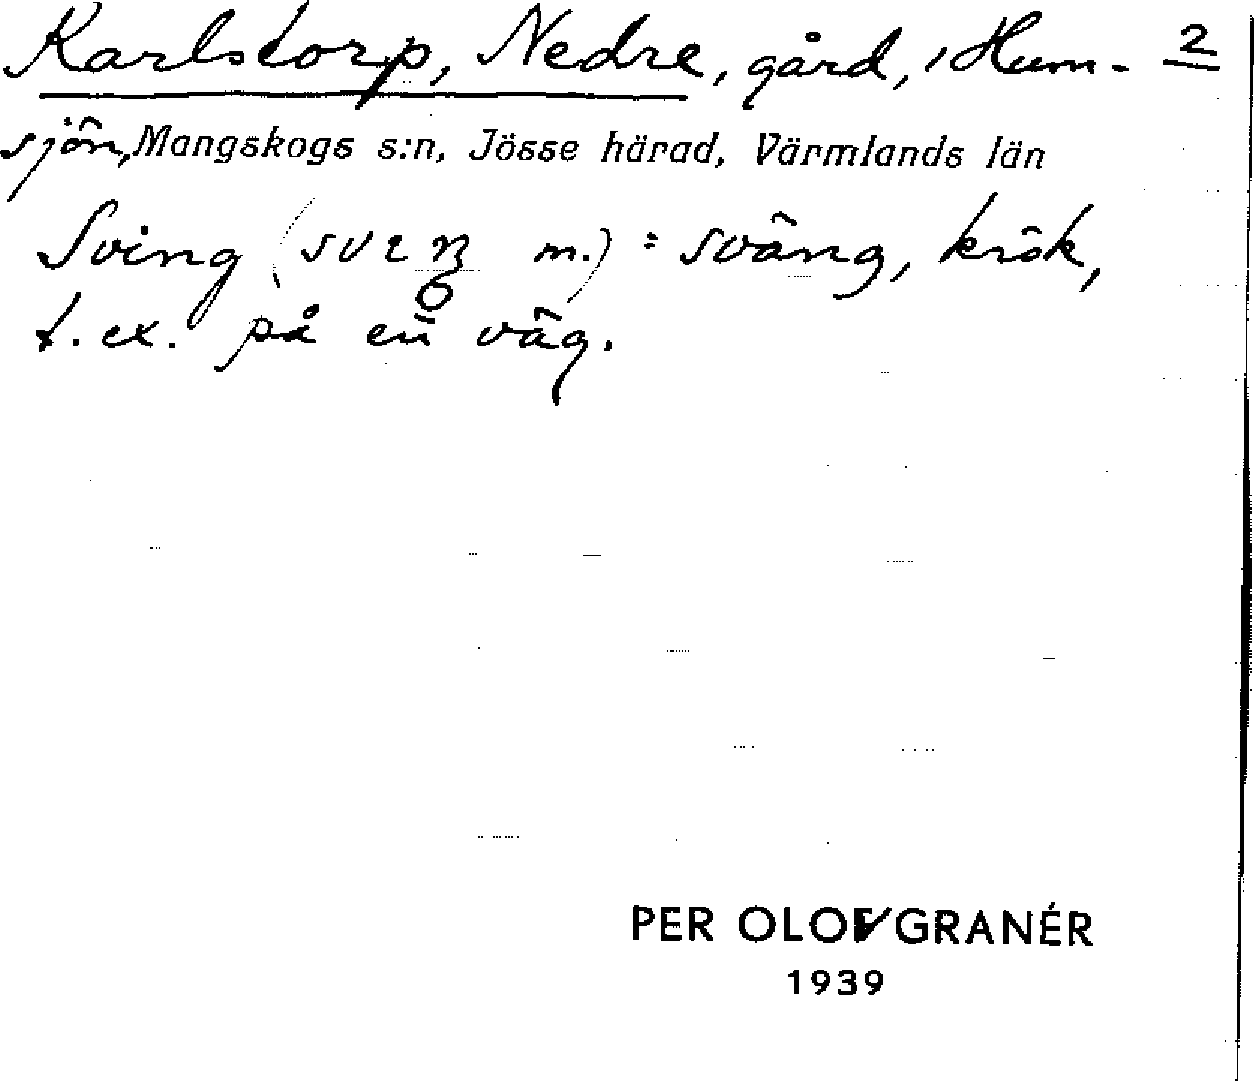 Karlstorp, Nedre, gård, i Hum- 2
sjön, Mangskogs s:n, Jösse härad, Värmlands län
Sving ( m.) = sväng, krök,
t. ex. på en väg.
PER OLOF GRANÉR
1939